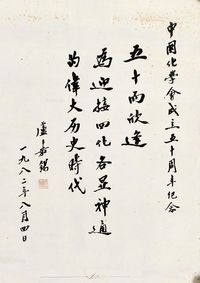 中国化学會成立五十周年纪念
五十而欣逢
為迎接四化各显神通
的偉大历史時代
盧嘉錫
一九八二年八月四日